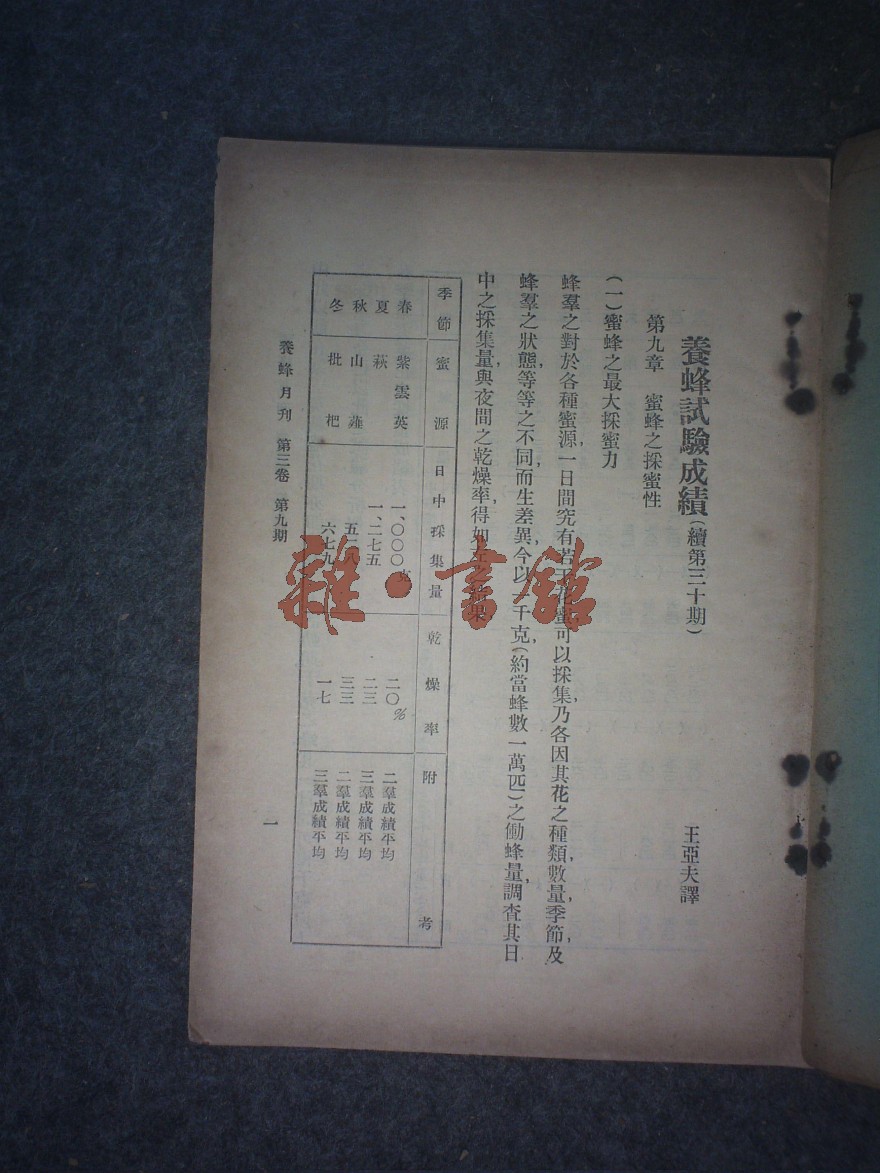 養蜂試驗成績(續第三十期)
王亞夫譯
第九章 蜜蜂之採蜜性
(一)蜜蜂之最大採蜜力
蜂羣之對於各種蜜源,一日間究有若干花蜜可以採集,乃各因其花之種類,數量,季節,及
蜂羣之狀態,等等之不同,而生差異,今以一千克,(約當蜂數一萬匹)之働蜂量,調查其日
中之採集量,與夜間之乾燥率,得如左之結果
季節 蜜源 日中採集量 乾燥率 附考
春 紫雲英 一、〇〇〇克 二〇% 二羣成績平均
夏 萩 一、二七五 二三 三羣成績平均
秋 山薤 五二八 三三 二羣成績平均
冬 枇杷 六七九 一七 三羣成績平均
養蜂月刊 第三卷 第九期
一
雜·書館